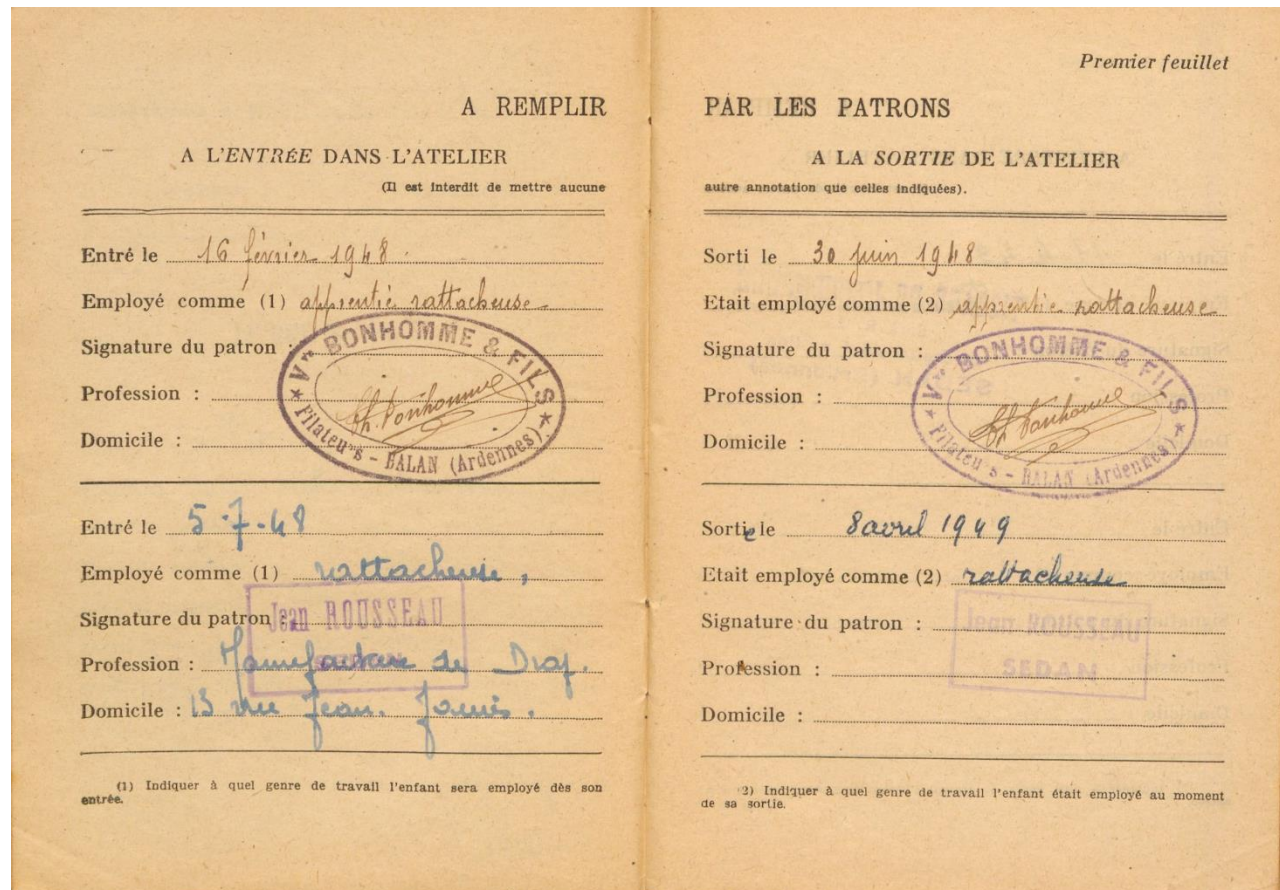 A REMPLIR
A L'ENTRÉE DANS L'ATELIER
(Il est interdit de mettre aucune
Entré le 16 février 1948.
Employé comme (1) apprentie rattacheuse
Signature du patron :
Profession :
Domicile :
Vve BONHOMME & FILS
Filateurs - BALAN (Ardennes)
Entré le 5-7-48
Employé comme (1) rattacheuse.
Signature du patron :
Jean ROUSSEAU
SEDAN
Profession : Manufacture de Drap.
Domicile : 13 rue Jean. Jaurès.
(1) Indiquer à quel genre de travail l'enfant sera employé dès son
entrée.
Premier feuillet
PAR LES PATRONS
A LA SORTIE DE L'ATELIER
autre annotation que celles indiquées).
Sorti le 30 juin 1948
Etait employé comme (2) apprentie rattacheuse
Signature du patron :
Profession :
Domicile :
Vve BONHOMME & FILS
Filateurs - BALAN (Ardennes)
Sortie le 8 avril 1949
Etait employé comme (2) rattacheuse
Signature du patron :
Jean ROUSSEAU
SEDAN
Profession :
Domicile :
2) Indiquer à quel genre de travail l'enfant était employé au moment
de sa sortie.